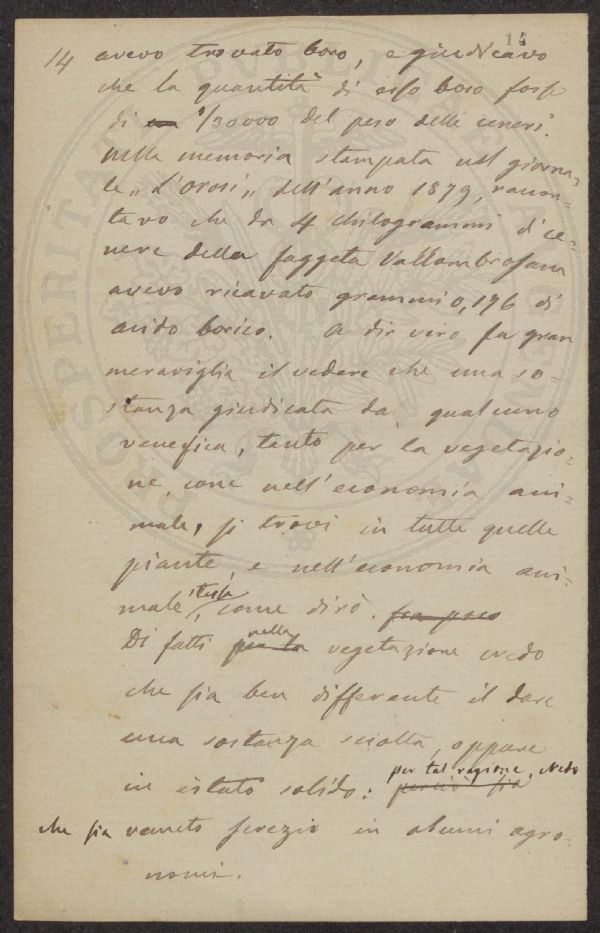 14
14 avevo trovato boro, e giudicavo
che la quantità di esso boro fosse
di 1/30000 del peso delle ceneri.
Nella memoria stampata nel giorna-
le „ L'Orosi „ dell'anno 1879, raccon-
tavo che da 4 chilogrammi di ce-
nere della faggeta Vallombrosana
avevo ricavato grammi 0,196 di
acido borico. A dir vero fa gran
meraviglia il vedere che una so-
stanza giudicata da qualcuno
venefica, tanto per la vegetazio-
ne, come nell'economia ani-
male, si trovi in tutte quelle
piante, e nell'economia ani-
male, come dirò. fra poco
Di fatti nella vegetazione credo
che sia ben differente il dare
una sostanza sciolta, oppure
in istato solido: per tal ragione, credo
che sia venuto screzio in alcuni agro-
nomi.